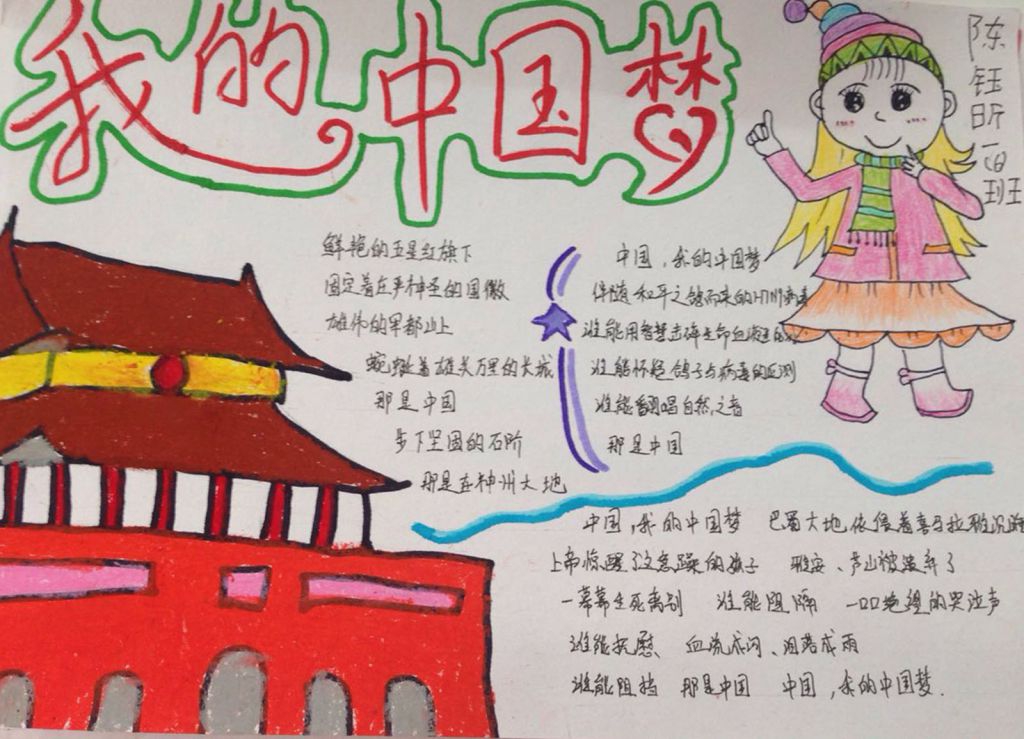 我的中国梦
陈钰昕
一(8)班
鲜艳的五星红旗下
固定着庄严神圣的国徽
雄伟的军都山上
蜿蜒着雄关万里的长城
那是中国
步下坚固的石阶
那是在神州大地
中国,我的中国梦
伴随和平之鸽而来的H7N9病毒
谁能用智慧击碎生命血液里的
谁能怀疑鸽子与病毒的
谁能翻唱自然之音
那是中国
中国,我的中国梦 巴蜀大地依偎着喜马拉雅沉
上帝惊醒了这急躁的孩子 雅安、芦山被
一幕幕生死离别 谁能阻隔 一口口绝望的哭泣声
谁能抚慰 血流成河、泪落成雨
谁能阻挡 那是中国 中国,我的中国梦.